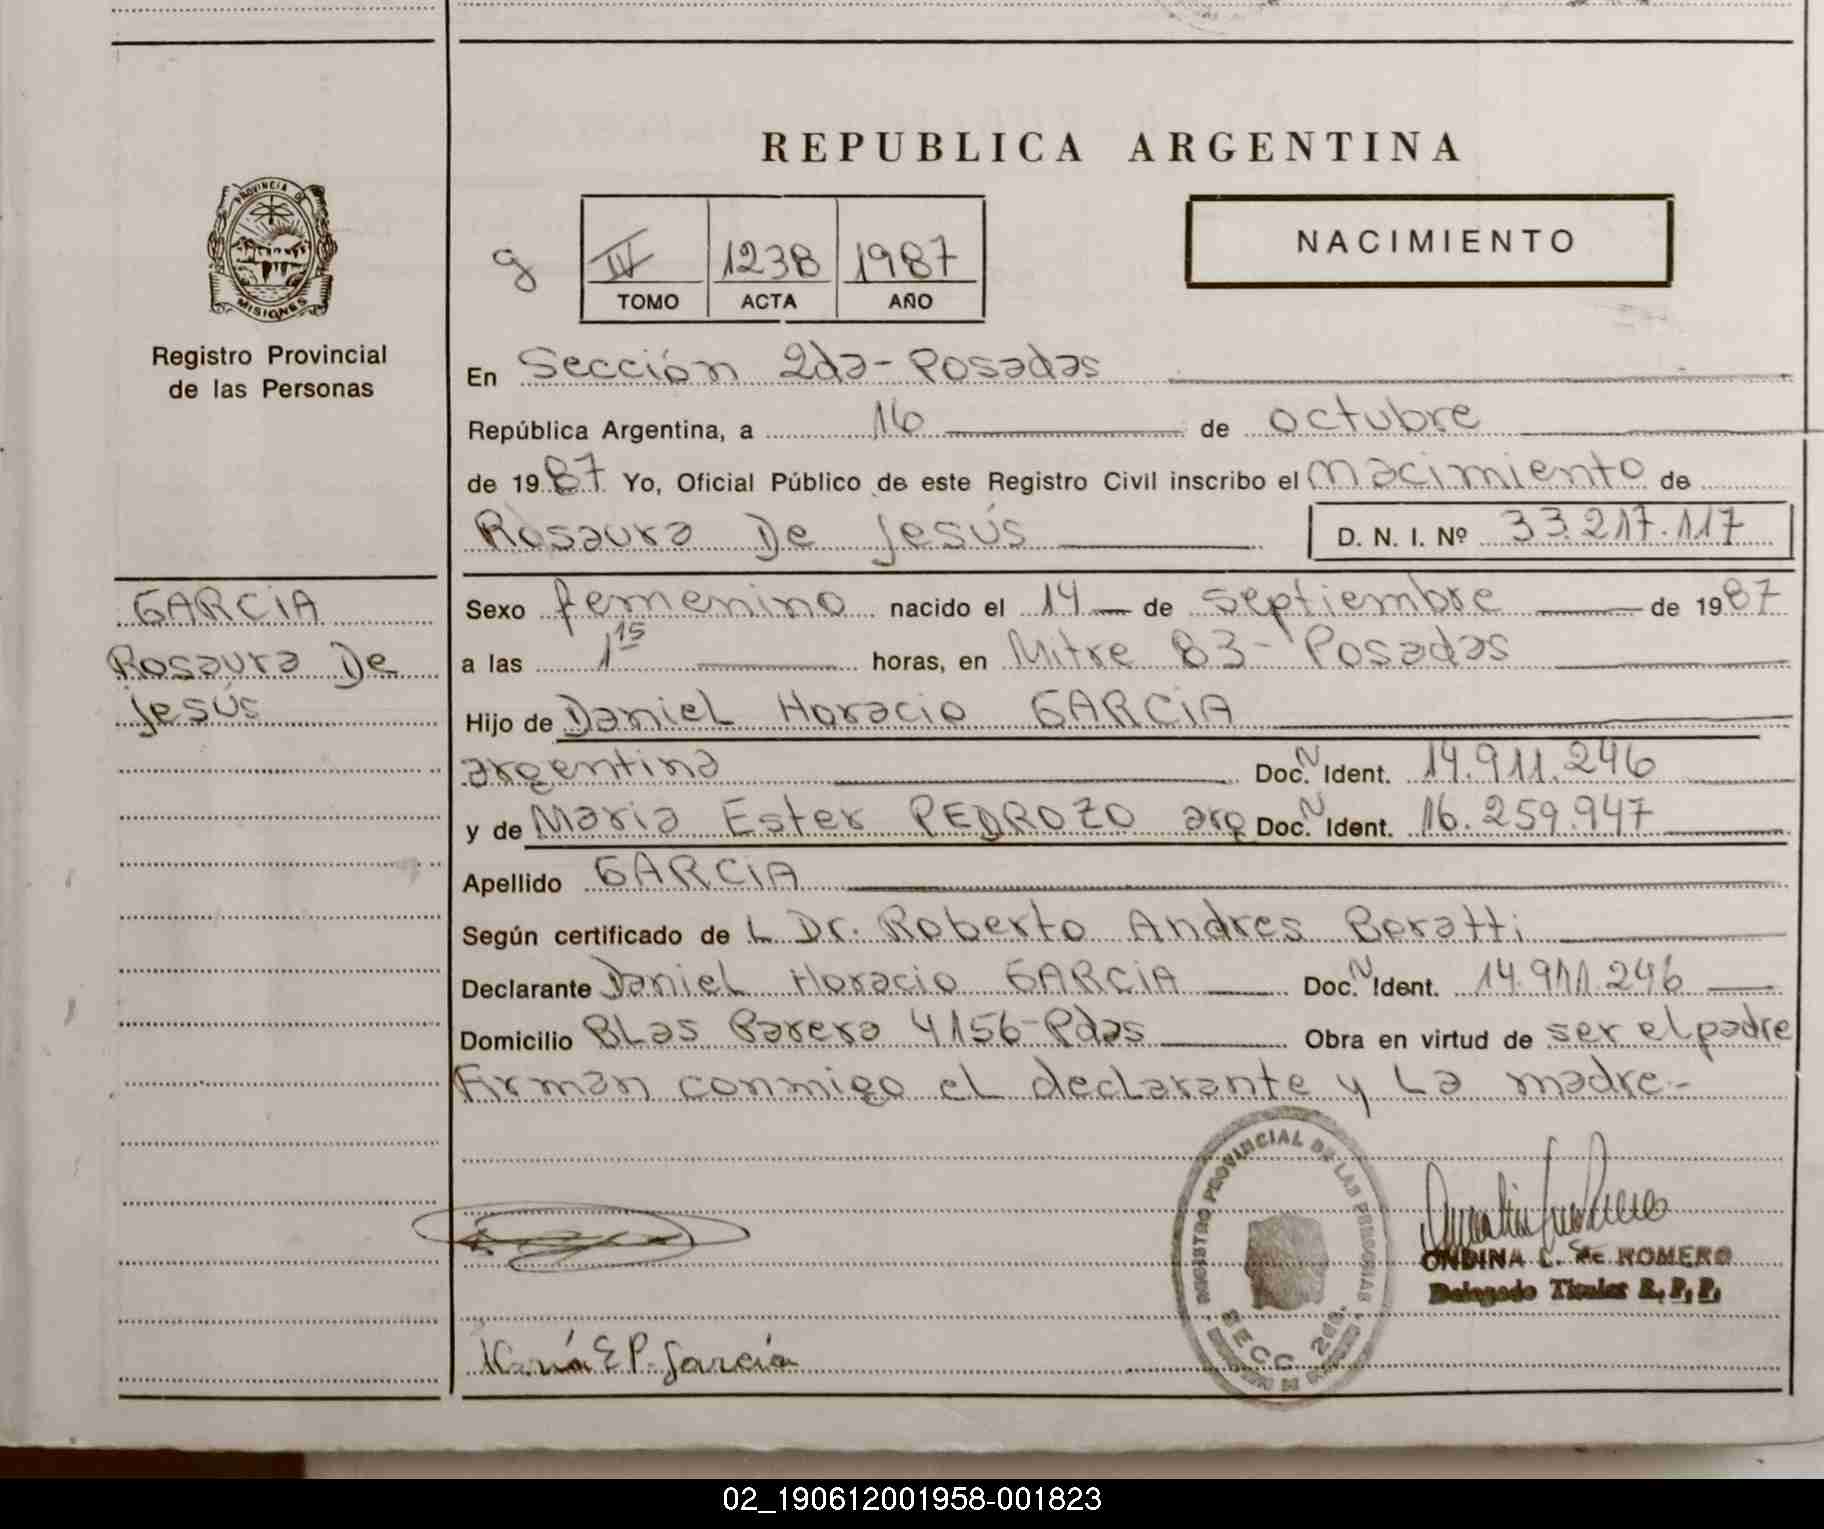 REPUBLICA ARGENTINA
PROVINCIA DE
MISIONES
Registro Provincial
de las Personas
g
IV 1238 1987
TOMO ACTA AÑO
NACIMIENTO
En Sección 2da - Posadas
República Argentina, a 16 de octubre
de 1987 Yo, Oficial Público de este Registro Civil inscribo el nacimiento de
Rosaura De Jesús D. N. I. Nº 33.217.117
GARCIA
Rosaura De
Jesús
Sexo femenino nacido el 14 de septiembre de 1987
a las 1 15 horas, en Mitre 83 - Posadas
Hijo de Daniel Horacio GARCIA
argentina Doc. N Ident. 14.911.246
y de Maria Ester PEDROZO arg Doc. N Ident. 16.259.947
Apellido GARCIA
Según certificado de L Dr. Roberto Andres Beratti
Declarante Daniel Horacio GARCIA Doc. N Ident. 14.911.246
Domicilio BLas Parera 4156 - Pdas Obra en virtud de ser el padre
Firman conmigo el declarante y La madre -
REGISTRO PROVINCIAL DE LAS PERSONAS
SECC. 2da.
ONDINA L. de ROMERO
Delegado Titular R. P. P.
María E P. García
02_190612001958-001823